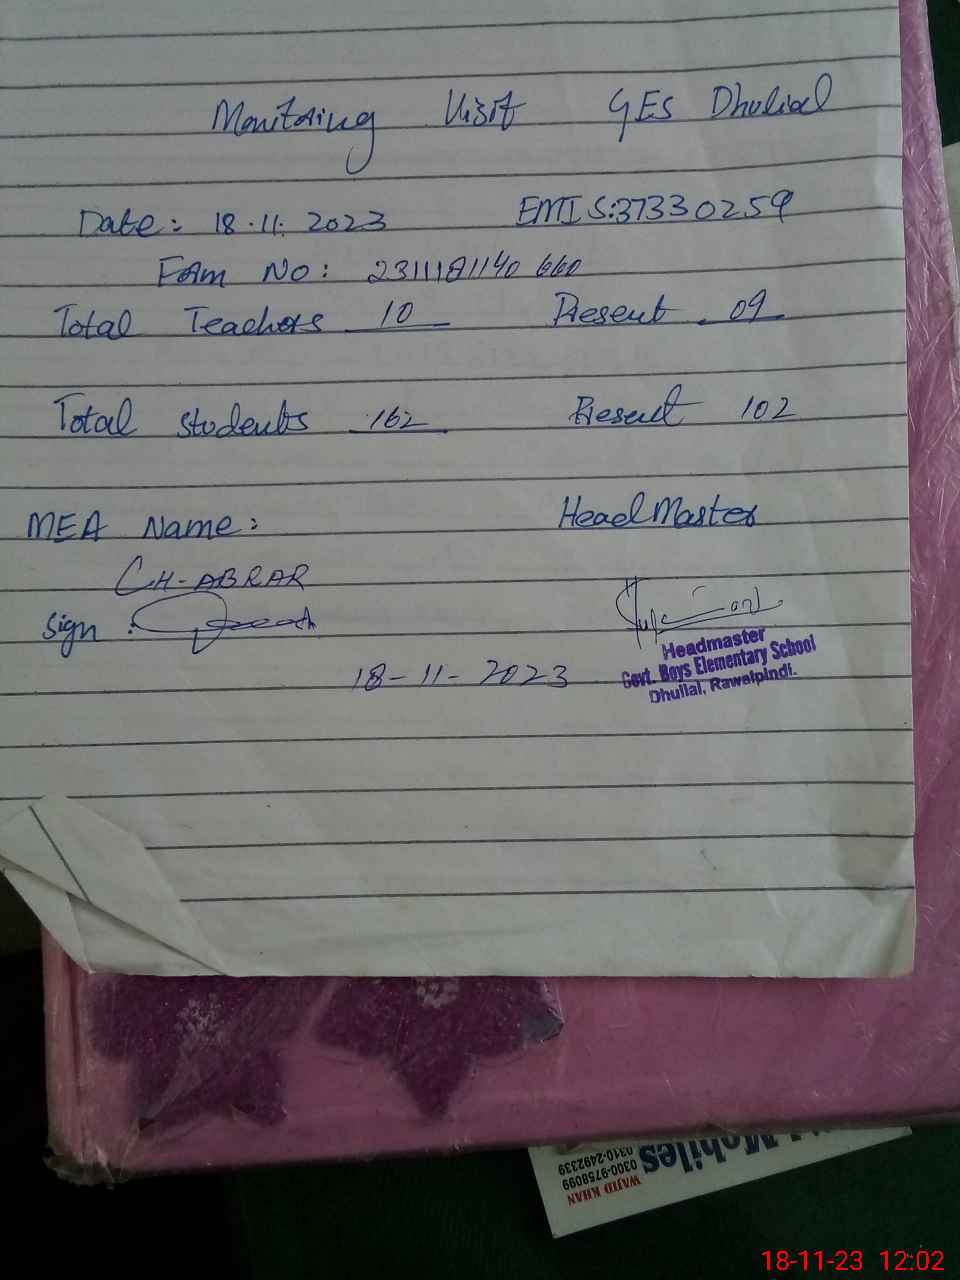 Monitoring Visit GES Dhulial
Date: 18.11.2023 EMIS:37330259
Form No: 2311181140660
Total Teachers 10 Present 09
Total students 162 Present 102
MEA Name: Head Master
CH-ABRAR
Sign :
Headmaster
Govt. Boys Elementary School
Dhullal, Rawalpindi.
18-11-2023
Mobiles
0310-2492339
0300-9758099
WAJID KHAN
18-11-23 12:02